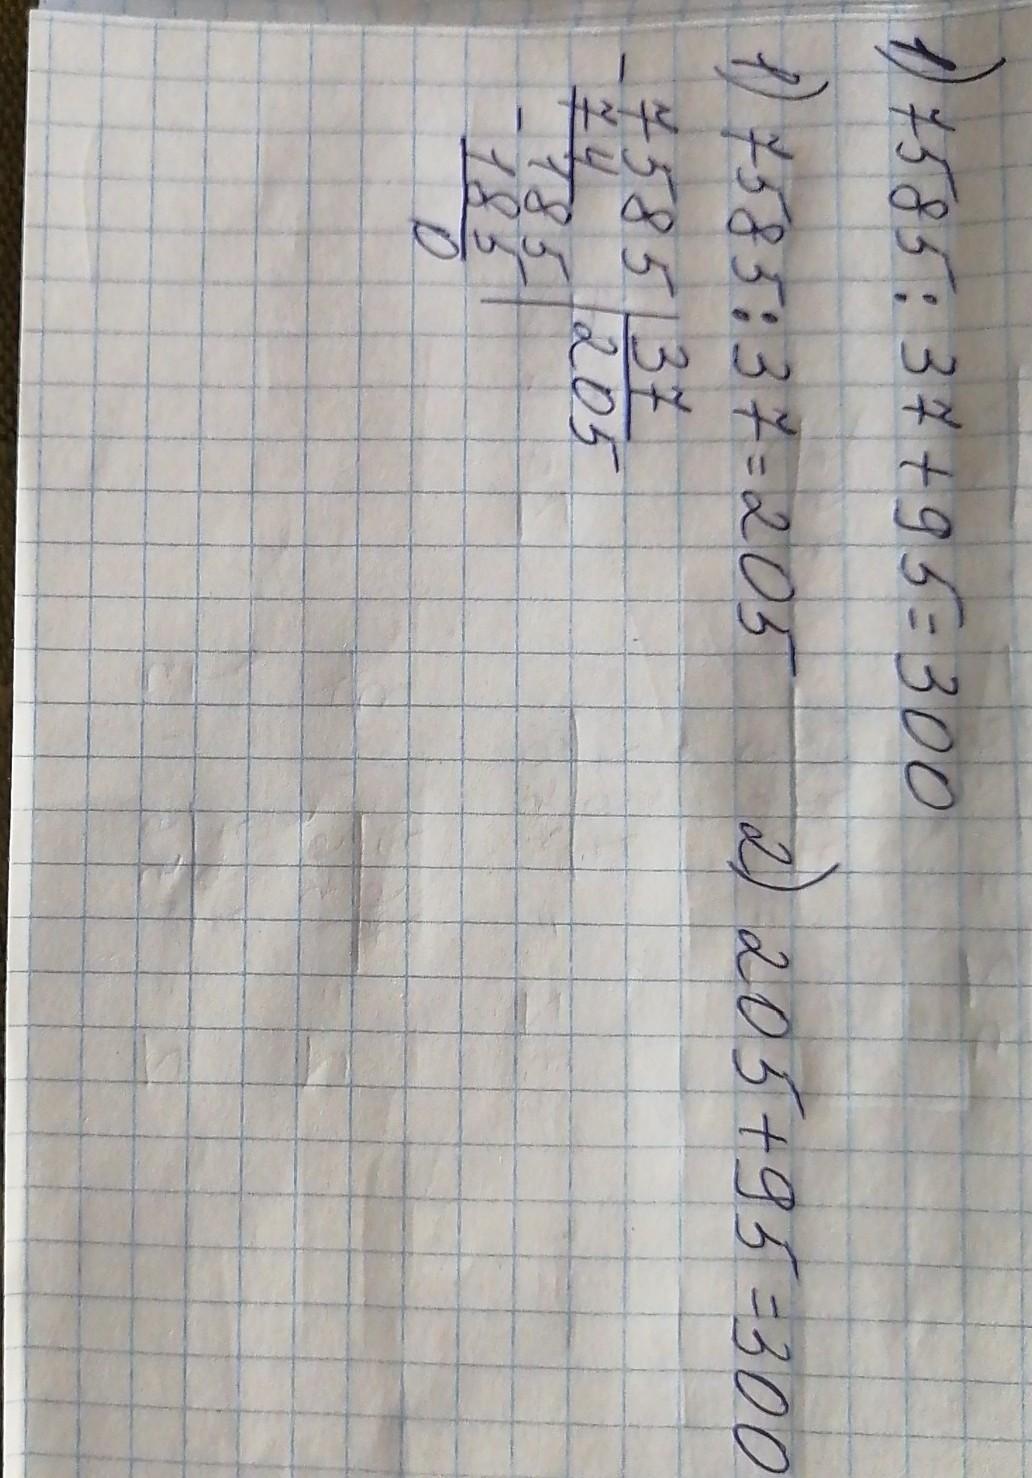 1) 7585 : 37 + 95 = 300
1) 7585 : 37 = 205 2) 205 + 95 = 300
- 7585 | 37
74 | 205
- 185
185
0